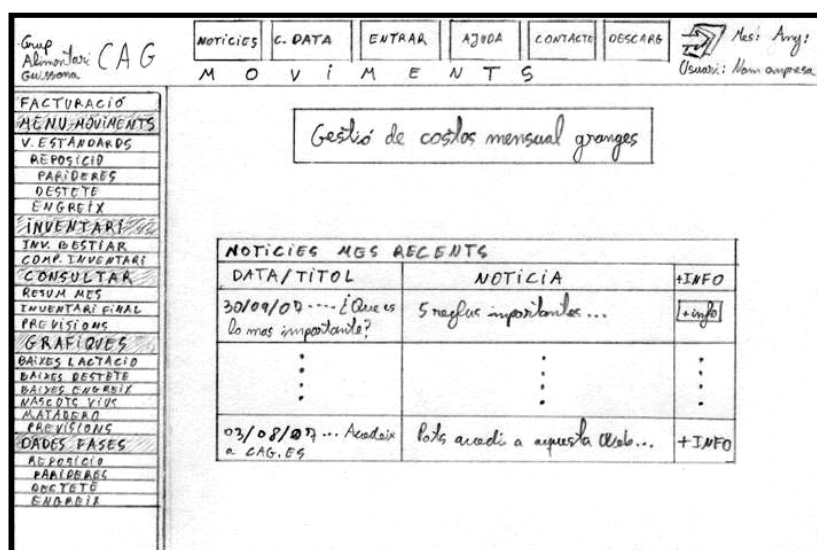 Grup
Alimentari CAG
Guissona
NOTICIES C. DATA ENTRAR AJUDA CONTACTE DESCARG
Mes: Any:
Usuari: Nom empresa
MOVIMENTS
FACTURACIÓ
MENU MOVIMENTS
V. ESTANDARDS
REPOSICIÓ
PARIDERES
DESTETE
ENGREIX
INVENTARI
INV. BESTIAR
COMP. INVENTARI
CONSULTAR
RESUM MES
INVENTARI FINAL
PREVISIONS
GRAFIQUES
BAIXES LACTACIO
BAIXES DESTETE
BAIXES ENGREIX
NASCUTS VIUS
MATADERO
PREVISIONS
DADES FASES
REPOSICIO
PARIDERES
DESTETE
ENGREIX
Gestió de costos mensual granges
NOTICIES MES RECENTS
DATA/TITOL NOTICIA +INFO
30/09/07 .... ¿Que es 5 reglas importantes... +info
lo mas importante?
03/08/07 ... Accedeix Pots accedir a aquesta Web... +INFO
a CAG.ES